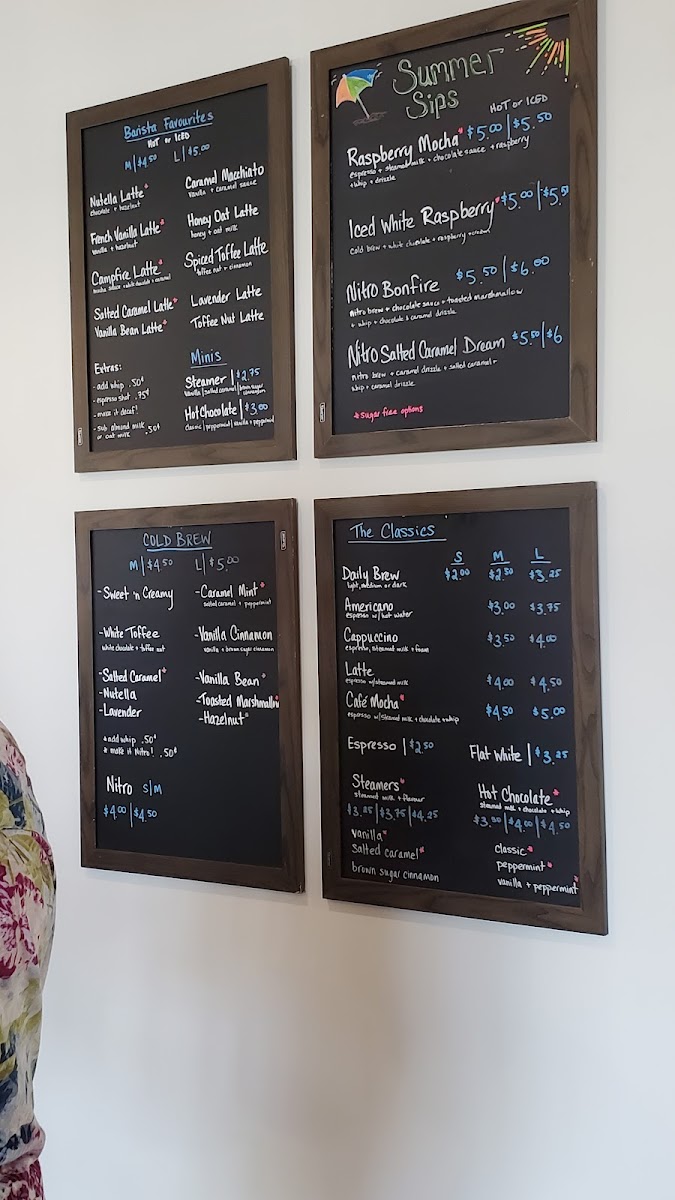 Barista Favourites
HOT or ICED
M | $4.50 L | $5.00
Nutella Latte*
chocolate + hazelnut
French Vanilla Latte*
vanilla + hazelnut
Campfire Latte*
mocha sauce + white chocolate + caramel
Salted Caramel Latte*
Vanilla Bean Latte*
Caramel Macchiato
vanilla + caramel sauce
Honey Oat Latte
honey + oat milk
Spiced Toffee Latte
toffee nut + cinnamon
Lavender Latte
Toffee Nut Latte
Extras:
- add whip .50¢
- espresso shot .75¢
- make it decaf!
- sub almond milk .50¢
or oat milk
Minis
Steamer | $2.75
vanilla | salted caramel | brown sugar
cinnamon
Hot Chocolate | $3.00
classic | peppermint | vanilla + peppermint
Summer
Sips
HOT or ICED
Raspberry Mocha* $5.00 | $5.50
espresso + steamed milk + chocolate sauce + raspberry
+ whip + drizzle
Iced White Raspberry* $5.00 | $5.50
cold brew + white chocolate + raspberry + cream
Nitro Bonfire $5.50 | $6.00
nitro brew + chocolate sauce + toasted marshmallow
+ whip + chocolate & caramel drizzle
Nitro Salted Caramel Dream $5.50 | $6
nitro brew + caramel drizzle + salted caramel +
whip + caramel drizzle
* sugar free options
COLD BREW
M | $4.50 L | $5.00
- Sweet 'n Creamy
- White Toffee
white chocolate + toffee nut
- Salted Caramel*
- Nutella
- Lavender
- Caramel Mint*
salted caramel + peppermint
- Vanilla Cinnamon
vanilla + brown sugar cinnamon
- Vanilla Bean*
- Toasted Marshmallow*
- Hazelnut*
* add whip .50¢
* make it Nitro! .50¢
Nitro S|M
$4.00 | $4.50
The Classics
S M L
Daily Brew $2.00 $2.50 $3.25
light, medium or dark
Americano $3.00 $3.75
espresso w/ hot water
Cappuccino $3.50 $4.00
espresso, steamed milk + foam
Latte $4.00 $4.50
espresso w/steamed milk
Café Mocha* $4.50 $5.00
espresso w/steamed milk + chocolate + whip
Espresso | $2.50 Flat White | $3.25
Steamers*
steamed milk + flavour
$3.25 | $3.75 | $4.25
vanilla*
salted caramel*
brown sugar cinnamon
Hot Chocolate*
steamed milk + chocolate + whip
$3.50 | $4.00 | $4.50
classic*
peppermint*
vanilla + peppermint*